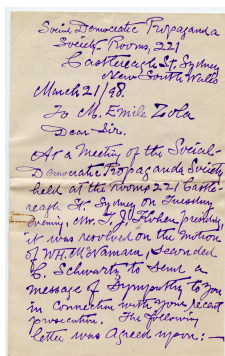 Social Democratic Propaganda
Society Rooms, 221
Castlereagh St, Sydney
New South Wales
March 21/98.
To M. Emile Zola
Dear Sir.
At a Meeting of the Social-
Democratic Propaganda Society
held at the rooms 221 Castle-
reagh St. Sydney on Tuesday
evening, Mr. T. J. presiding,
it was resolved on the motion
of W.H. McNamara, seconded
Schwartz to send a
message of Sympathy to you
in Connection with your recent
prosecution. The following
letter was agreed upon:—